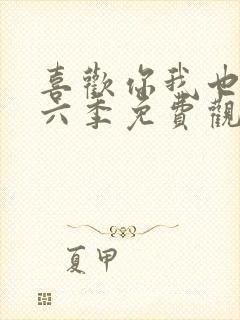 喜歡你我也
六季免費觀
夏甲